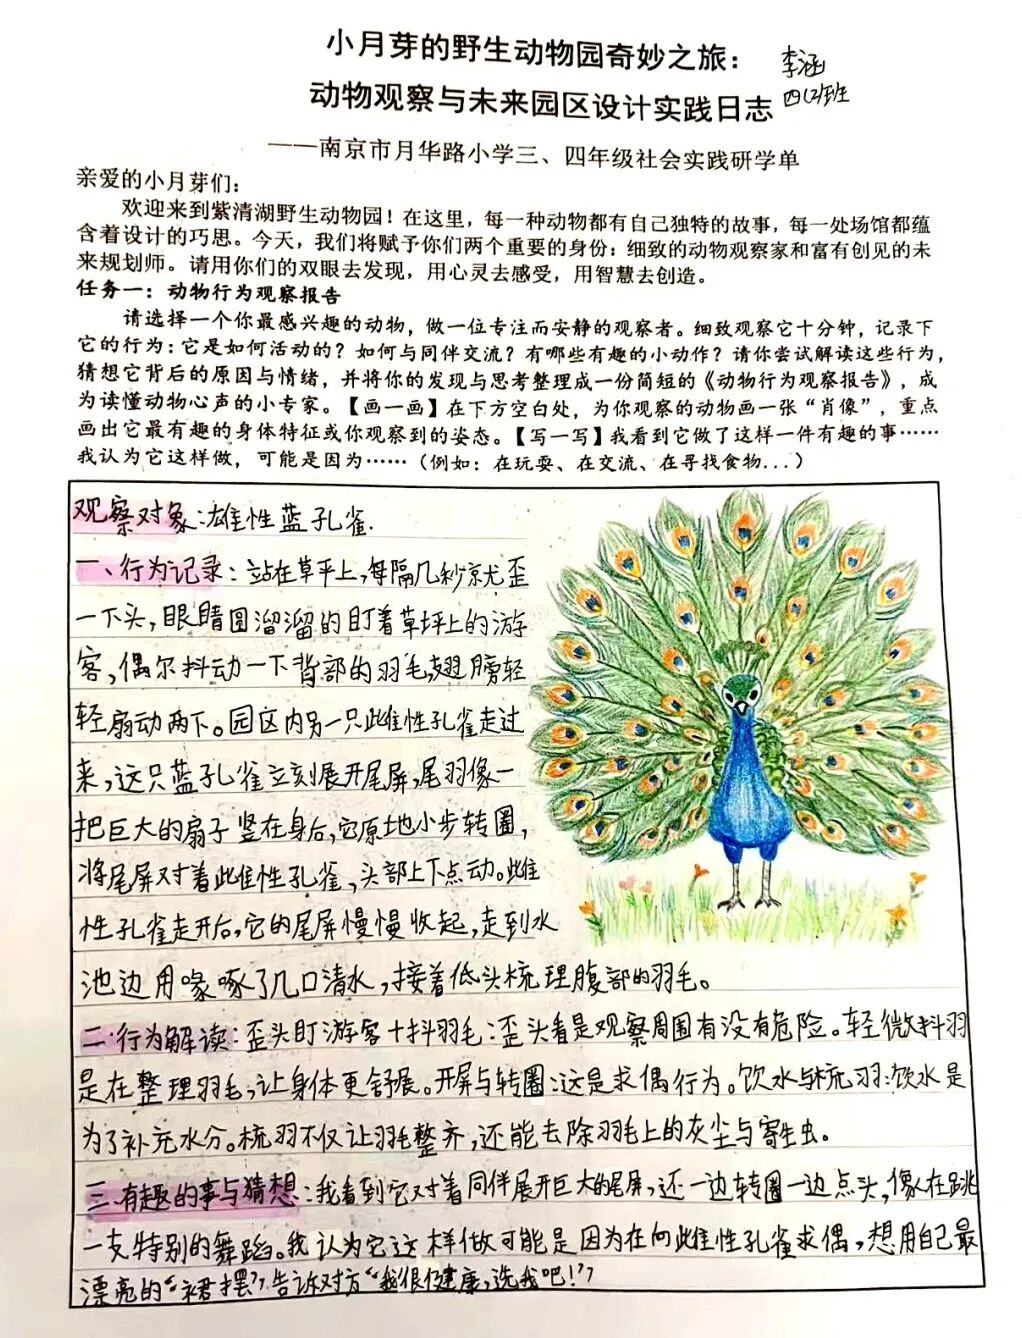 小月芽的野生动物园奇妙之旅：
李涵
动物观察与未来园区设计实践日志
四(2)班
——南京市月华路小学三、四年级社会实践研学单
亲爱的小月芽们：
欢迎来到紫清湖野生动物园！在这里，每一种动物都有自己独特的故事，每一处场馆都蕴
含着设计的巧思。今天，我们将赋予你们两个重要的身份：细致的动物观察家和富有创见的未
来规划师。请用你们的双眼去发现，用心灵去感受，用智慧去创造。
任务一：动物行为观察报告
请选择一个你最感兴趣的动物，做一位专注而安静的观察者。细致观察它十分钟，记录下
它的行为：它是如何活动的？如何与同伴交流？有哪些有趣的小动作？请你尝试解读这些行为，
猜想它背后的原因与情绪，并将你的发现与思考整理成一份简短的《动物行为观察报告》，成
为读懂动物心声的小专家。【画一画】在下方空白处，为你观察的动物画一张“肖像”，重点
画出它最有趣的身体特征或你观察到的姿态。【写一写】我看到它做了这样一件有趣的事……
我认为它这样做，可能是因为……（例如：在玩耍、在交流、在寻找食物...）
观察对象：雄性蓝孔雀.
一、行为记录：站在草平上，每隔几秒就歪
一下头，眼睛圆溜溜的盯着草坪上的游
客，偶尔抖动一下背部的羽毛，翅膀轻
轻扇动两下。园区内另一只雌性孔雀走过
来，这只蓝孔雀立刻展开尾屏，尾羽像一
把巨大的扇子竖在身后，它原地小步转圈，
将尾屏对着雌性孔雀，头部上下点动。雌
性孔雀走开后，它的尾屏慢慢收起，走到水
池边用喙啄了几口清水，接着低头梳理腹部的羽毛。
二、行为解读：歪头盯游客+抖羽毛：歪头看是观察周围有没有危险。轻微抖羽
是在整理羽毛，让身体更舒展。开屏与转圈：这是求偶行为。饮水与梳羽：饮水是
为了补充水分。梳羽不仅让羽毛整齐，还能去除羽毛上的灰尘与寄生虫。
三、有趣的事与猜想：我看到它对着同伴展开巨大的尾屏，还一边转圈一边点头，像在跳
一支特别的舞蹈。我认为它这样做可能是因为在向雌性孔雀求偶，想用自己最
漂亮的“裙摆”，告诉对方“我很健康，选我吧！”